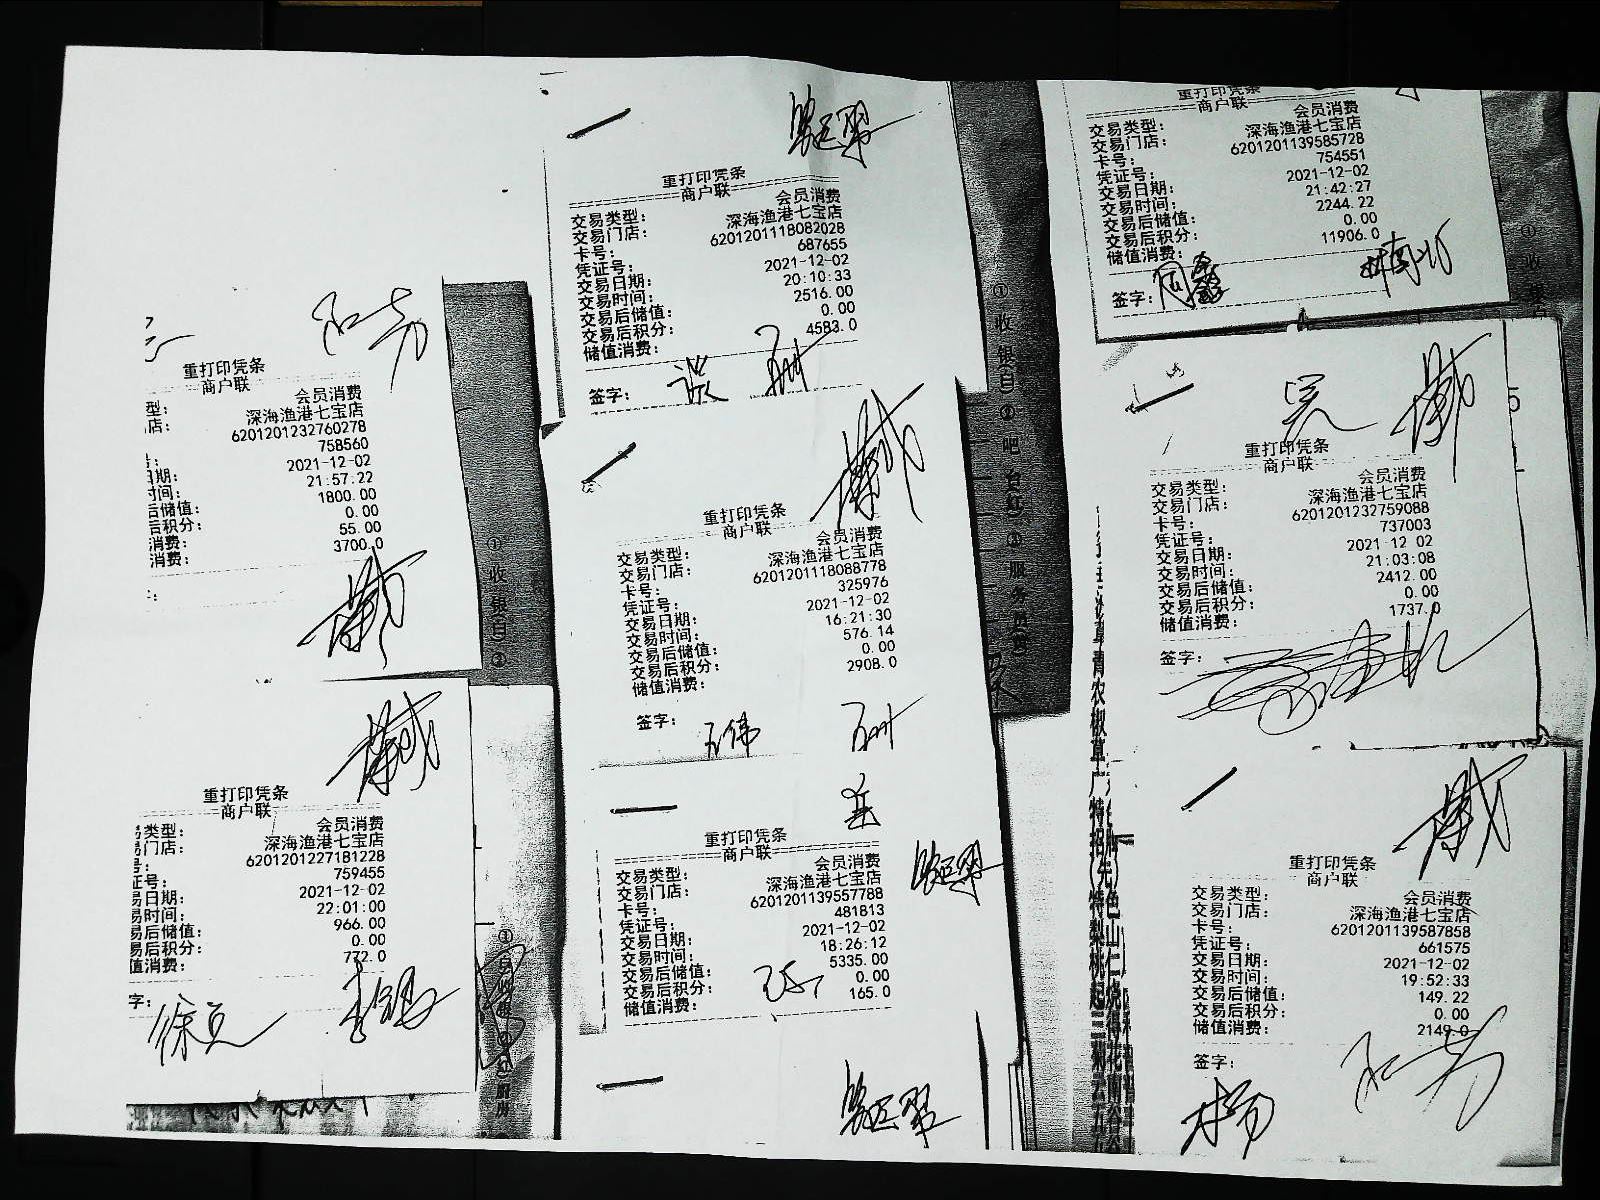 重打印凭条
商户联
型： 会员消费
店： 深海渔港七宝店
6201201232760278
758560
2021-12-02
日期： 21:57:22
时间： 1800.00
后储值： 0.00
后积分： 55.00
消费： 3700.0
消费：
重打印凭条
商户联
类型： 会员消费
门店： 深海渔港七宝店
号： 6201201227181228
证号： 759455
易日期： 2021-12-02
易时间： 22:01:00
易后储值： 966.00
易后积分： 0.00
值消费： 772.0
字：
重打印凭条
商户联
交易类型： 会员消费
交易门店： 深海渔港七宝店
卡号： 6201201118082028
凭证号： 687655
交易日期： 2021-12-02
交易时间： 20:10:33
交易后储值： 2516.00
交易后积分： 0.00
储值消费： 4583.0
签字：
重打印凭条
商户联
交易类型： 会员消费
交易门店： 深海渔港七宝店
卡号： 6201201118088778
凭证号： 325976
交易日期： 2021-12-02
交易时间： 16:21:30
交易后储值： 576.14
交易后积分： 0.00
储值消费： 2908.0
签字： 王伟
重打印凭条
商户联
交易类型： 会员消费
交易门店： 深海渔港七宝店
卡号： 6201201139557788
凭证号： 481813
交易日期： 2021-12-02
交易时间： 18:26:12
交易后储值： 5335.00
交易后积分： 0.00
储值消费： 165.0
重打印凭条
商户联
交易类型： 会员消费
交易门店： 深海渔港七宝店
卡号： 6201201139585728
凭证号： 754551
交易日期： 2021-12-02
交易时间： 21:42:27
交易后储值： 2244.22
交易后积分： 0.00
储值消费： 11906.0
签字：
吴
重打印凭条
商户联
交易类型： 会员消费
交易门店： 深海渔港七宝店
卡号： 6201201232759088
凭证号： 737003
交易日期： 2021-12-02
交易时间： 21:03:08
交易后储值： 2412.00
交易后积分： 0.00
储值消费： 1737.0
签字：
重打印凭条
商户联
交易类型： 会员消费
交易门店： 深海渔港七宝店
卡号： 6201201139587858
凭证号： 661575
交易日期： 2021-12-02
交易时间： 19:52:33
交易后储值： 149.22
交易后积分： 0.00
储值消费： 2149.0
签字：